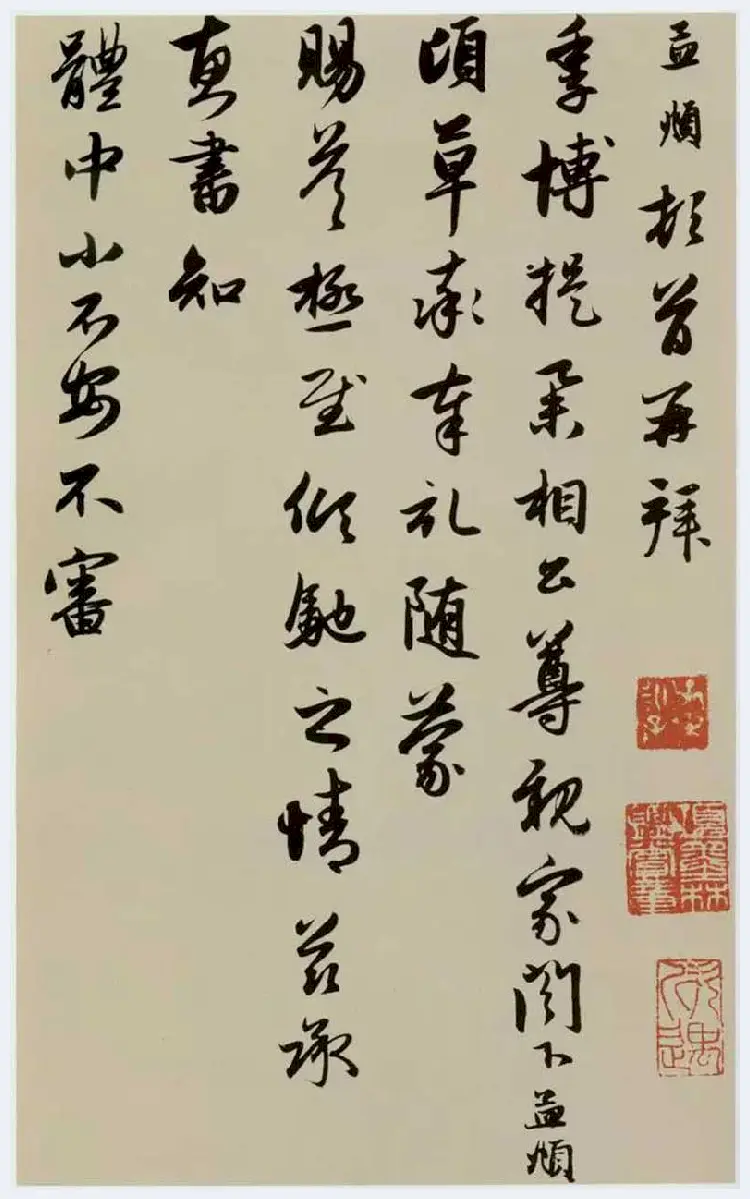 孟頫頓首再拜
季博提舉相公尊親家閣下孟頫
頃草率奉記隨蒙
賜答極慰傾馳之情茲承
惠書知
體中小不安不審